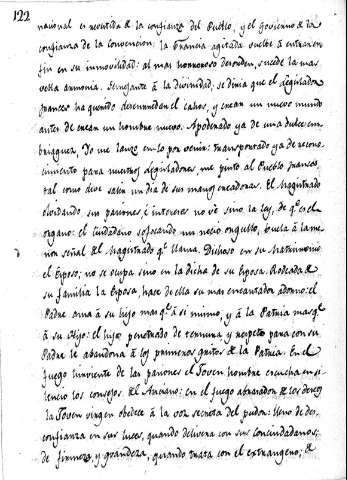 122
nacional es revestida de la confianza del Pueblo, y el Govierno de la
confianza de la Convencion; la Francia agitada vuelve à entrar en
fin en su inmobilidad: al mas horroroso desorden, sucede la mas
vella armonia. Semejante à la divinidad, se diria que el Legislador
frances ha querido desenmredar el cahos, y crear un nuevo mundo
antes de crear un hombre nuevo. Apoderado ya de una dulce em
briaguez, Yo me lanzo en lo por venir: transportado ya de recono
cimiento para nuestros Legisladores, me pinto al Pueblo frances,
tal como deve salir un dia de sus manos creadoras. El Magistrado
olvidando sus pasiones, è intereses no vè sino la ley, de q.e es el
organo: el Ciudadano sofocando un necio orgullo, buela à la me
nor señal del Magistrado q.e llama. Dichoso en su Matrimonio
el Esposo; no se ocupa sino en la dicha de su Esposa. Rodeada de
su familia la Esposa, hace de ella su mas encantador adorno: el
Padre ama à su hijo mas q.e à si mismo, y à la Patria mas q.e
à su Hijo: el hijo penetrado de ternura y respeto para con su
Padre le abandona à los primeros gritos de la Patria. En el
fuego hirviente de las pasiones el Joven hombre escucha en si
lencio los consejos del Anciano: en el fuego abrasador de los deseos
la Joven virgen obedece à la voz secreta del pudor: lleno de des
confianza en sus luces, quando delivera con sus conciudadanos;
de firmeza y grandeza, quando trata con el extrangero; de